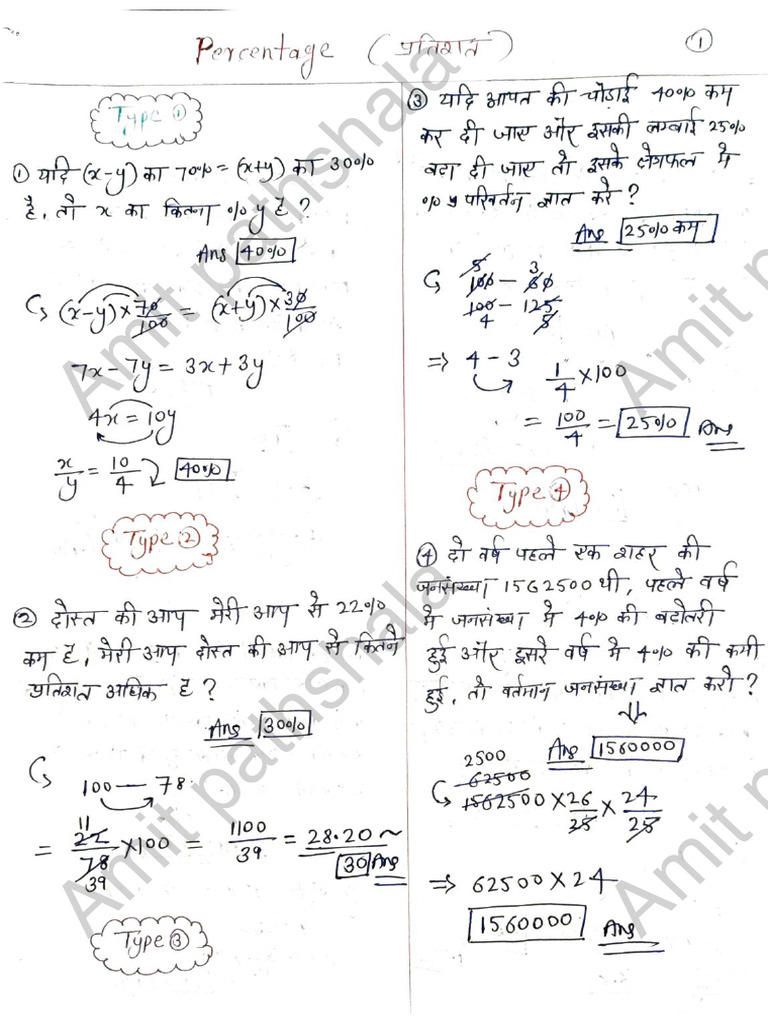 Percentage (प्रतिशत)
1
Type 1
① यदि (x-y) का 70% = (x+y) का 30%
है, तो x का कितना % y है ?
Ans 40%
(x-y) × 70/100 = (x+y) × 30/100
7x - 7y = 3x + 3y
4x = 10y
x/y = 10/4 40%
Type 2
② दोस्त की आय मेरी आय से 22%
कम है, मेरी आय दोस्त की आय से कितने
प्रतिशत अधिक है ?
Ans 30%
100 — 78
11
= 22/78 × 100 = 1100/39 = 28.20 ~
39
30 Ans
Type 3
③ यदि आयत की चौड़ाई 40% कम
कर दी जाए और इसकी लम्बाई 25%
बढा दी जाए तो इसके क्षेत्रफल मे
% परिवर्तन ज्ञात करे ?
Ans 25% कम
5 3
100 - 60
100 - 125
4 5
⇒ 4 - 3 1/4 × 100
= 100/4 = 25% Ans
Type 4
④ दो वर्ष पहले एक शहर की
जनसंख्या 1562500 थी, पहले वर्ष
मे जनसंख्या मे 4% की बढोतरी
हुई और दूसरे वर्ष मे 4% की कमी
हुई, तो वर्तमान जनसंख्या ज्ञात करो ?
Ans 1560000
2500
62500
1562500 × 26/25 × 24/25
⇒ 62500 × 24
1560000 Ans
Amit pathshala
Amit pathshala
Amit pathshala
Amit p